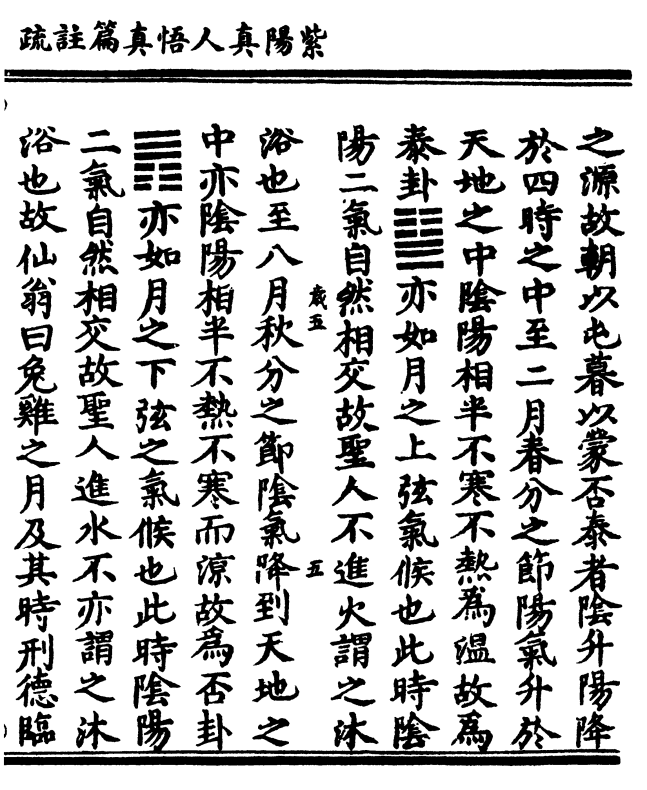 紫陽真人悟真篇註疏
之源故朝以屯暮以蒙否泰者陰升陽降
於四時之中至二月春分之節陽氣升於
天地之中陰陽相半不寒不熱爲溫故爲
泰卦䷊亦如月之上弦氣候也此時陰
陽二氣自然相交故聖人不進火謂之沐
歲五 五
浴也至八月秋分之節陰氣降到天地之
中亦陰陽相半不熱不寒而涼故爲否卦
䷋亦如月之下弦之氣候也此時陰陽
二氣自然相交故聖人進水不亦謂之沐
浴也故仙翁曰兔雞之月及其時刑德臨